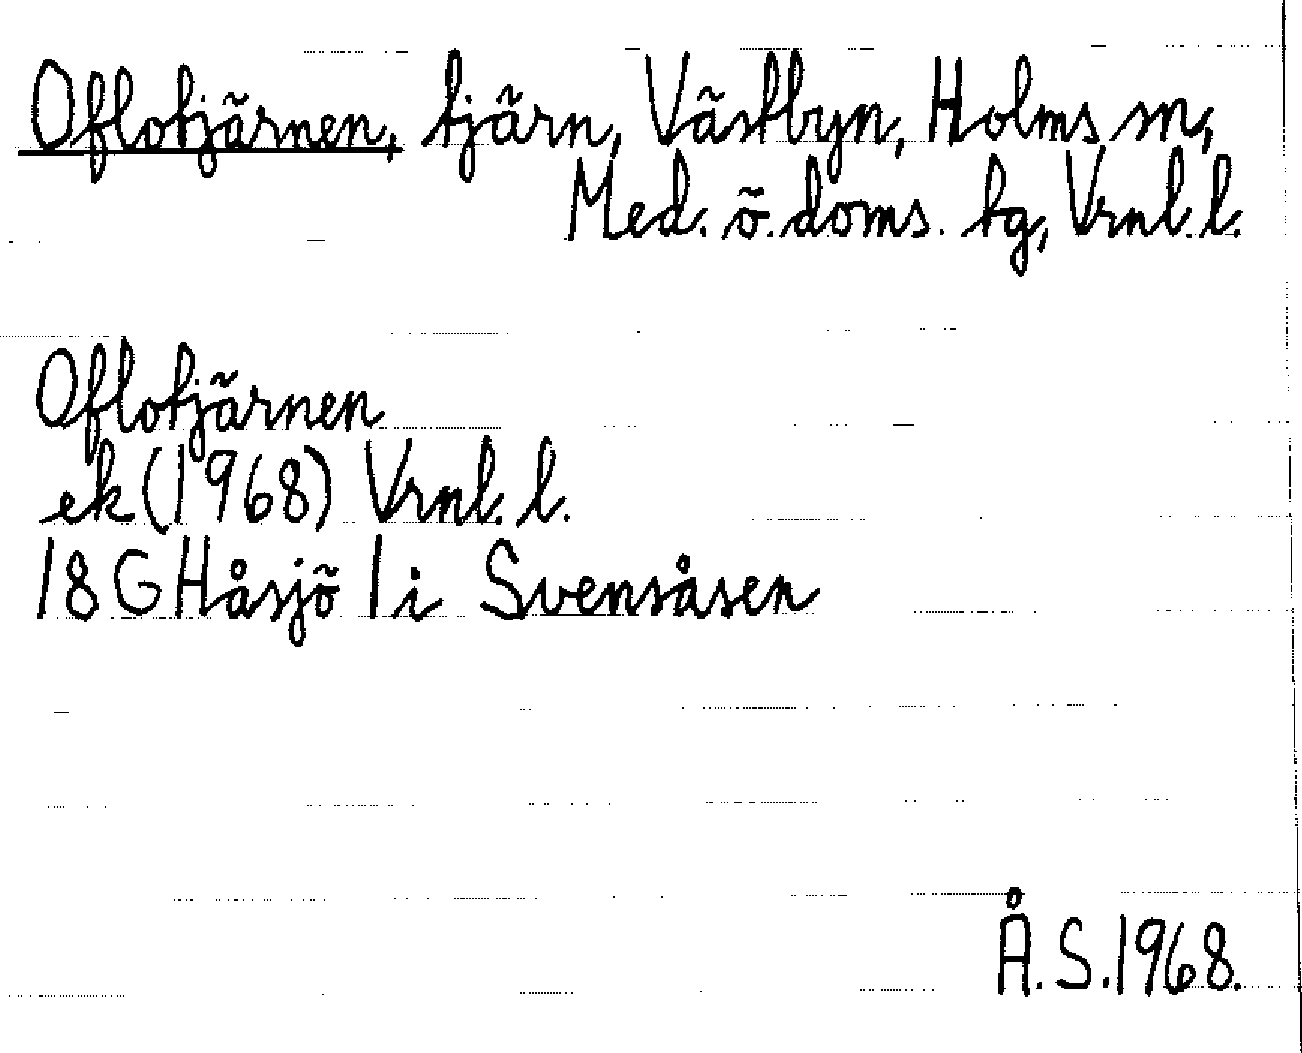 Oflotjärnen, tjärn, Västbyn, Holms sn,
Med. ö. doms. tg, Vrnl. l.
Oflotjärnen
ek (1968) Vrnl. l.
18 G Håsjö 1 i Svensåsen
Å. S. 1968.